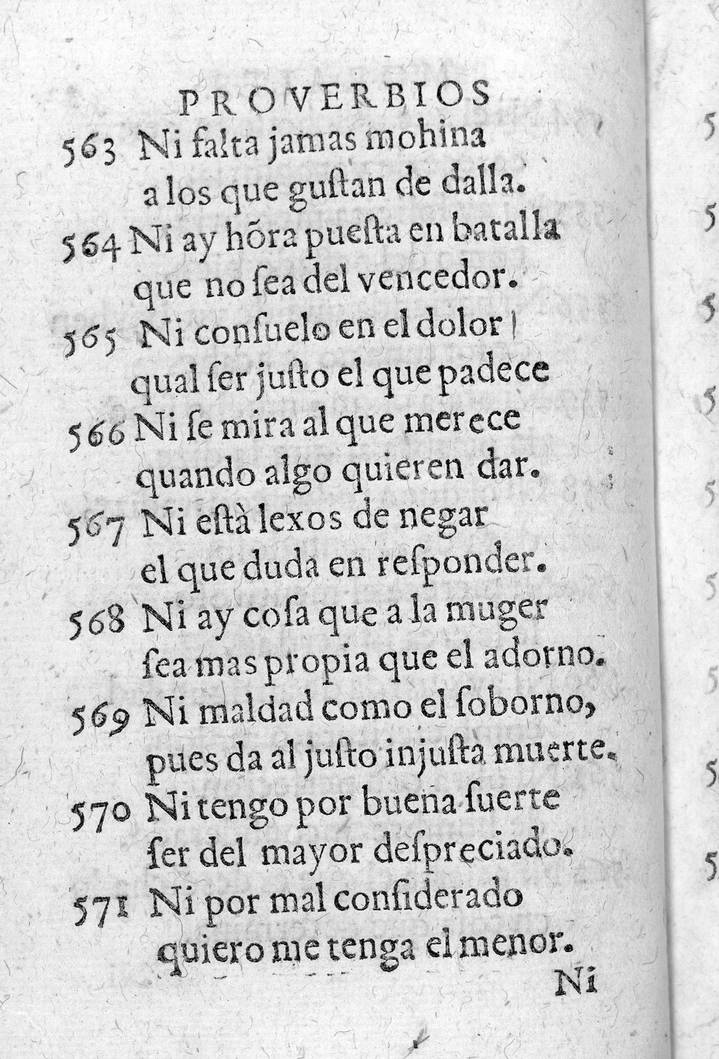 PROVERBIOS
563 Ni falta jamas mohina
a los que guſtan de dalla.
564 Ni ay hõra pueſta en batalla
que no ſea del vencedor.
565 Ni conſuelo en el dolor
qual ſer juſto el que padece
566 Ni ſe mira al que merece
quando algo quieren dar.
567 Ni eſtà lexos de negar
el que duda en reſponder.
568 Ni ay coſa que a la muger
ſea mas propia que el adorno.
569 Ni maldad como el ſoborno,
pues da al juſto injuſta muerte.
570 Ni tengo por buena ſuerte
ſer del mayor deſpreciado.
571 Ni por mal conſiderado
quiero me tenga el menor.
Ni